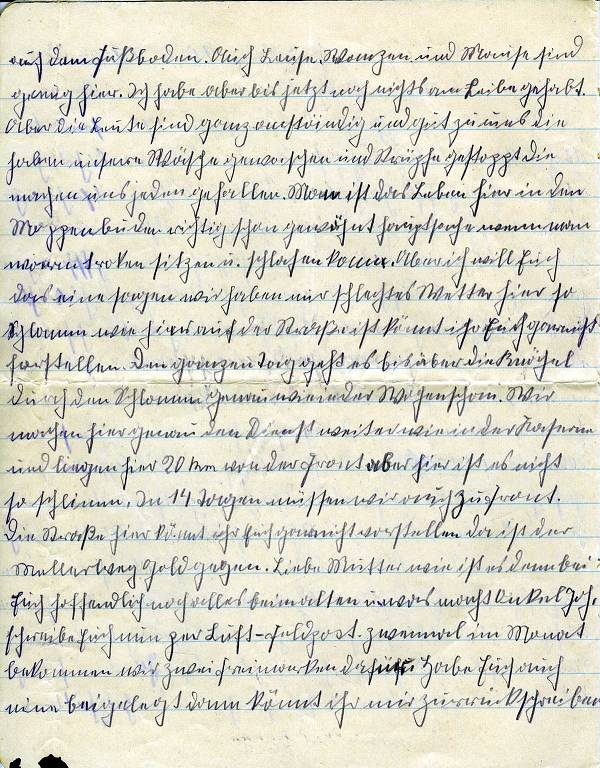 auf dem Fußboden. Auch Leuse, Wanzen und Mäuse sind
genug hier. Ich habe aber bis jetzt noch nichts am Leibe gehabt.
Aber die Leute sind ganz anständig und gut zu uns die
haben unsere Wäsche gewaschen und Strüpfe gestoppt die
machen uns jeden gefallen. Man ist das Leben hier in den
buden richtig schon gewöhnt hauptsache wenn man
warm troken sitzen u. schlafen kann. Aber ich will Euch
das eine sagen wir haben nur schlechtes Wetter hier so
Schlamm wie hier auf der Straße ist könnt ihr Euch garnicht
forstellen. Den ganzen Tag geht es bis über die Knöchel
durch den Schlamm genau wie in der Wir
machen hier genau den Dienst weiter wie in der Kaserne
und liegen hier 20 km von der Front aber hier ist es nicht
so schlimm, In 14 Tagen müssen wir auch zu Front.
Die Straße hier könnt ihr Euch garnicht vorstellen da ist der
Gold gegen. Liebe Mutter wie ist es denn bei
Euch hoffendlich noch alles beim alten u was macht Onkel Joh.
schreibe Euch nun per Luft-Feldpost. zweimal im Monat
bekommen wir zwei Freimarken dafür Habe Euch auch
eine beigelegt dann könnt ihr mir zurückschreiben